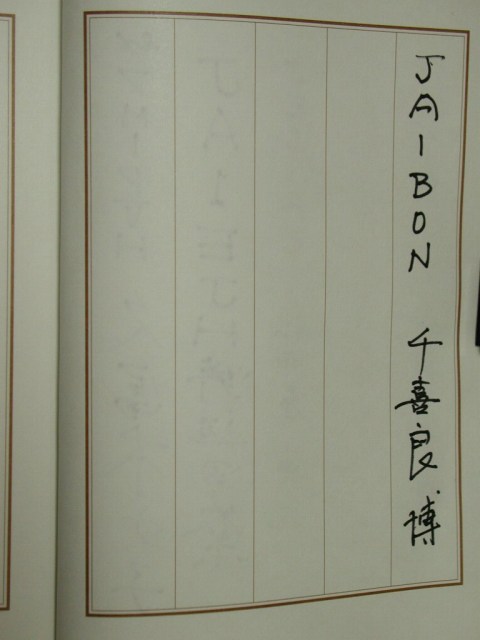 JA1BON 千喜良博